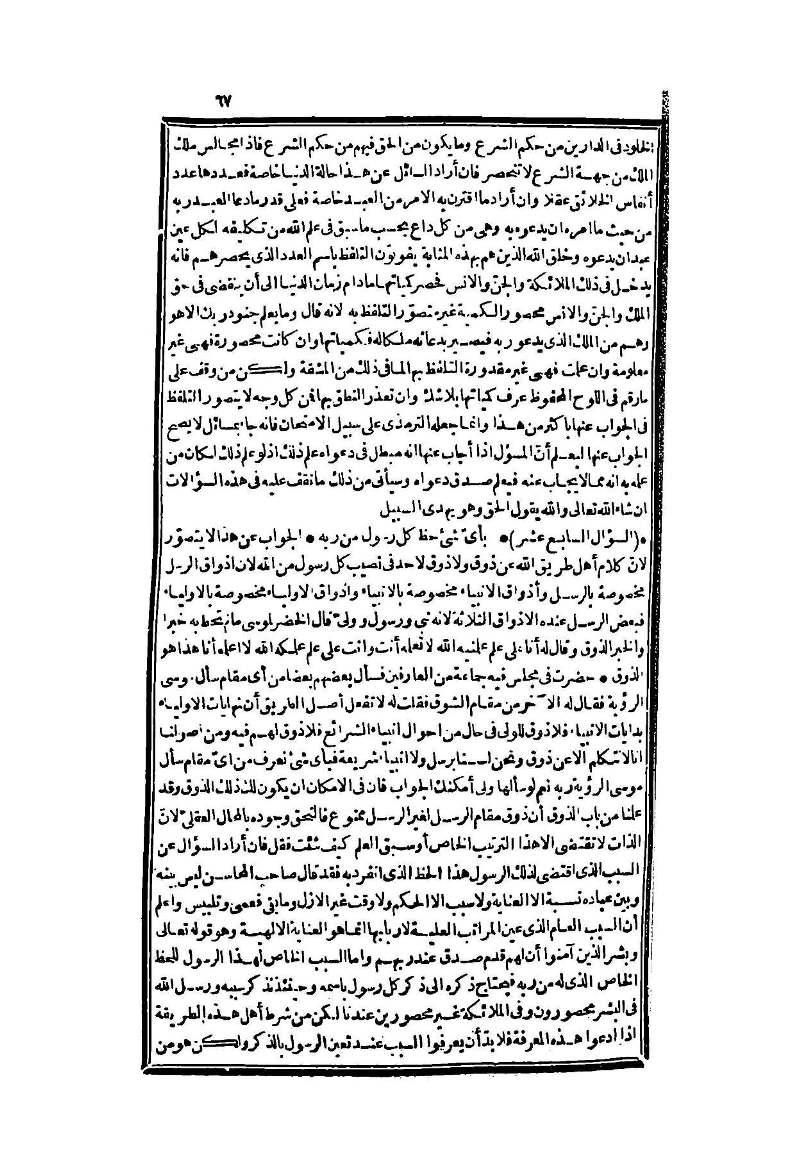 ٦٧
الخلود فى الدارين من حكم الشرع وما يكون من الحق فيهم من حكم الشرع فاذا مجالس ملك
الملك من جهة الشرع لا تنحصر فان أراد السائل عن هذا حالة الدنيا خاصة فعددها عدد
أنفاس الخلائق عقلا وان أراد ما اقترن به الامر من العبد خاصة فعلى قدر ما دعا العبد ربه
من حيث ما امره ان يدعوه به وهى من كل داع بحسب ما سبق فى علم الله من تكليفه لكل عين
عبد ان يدعوه وخلق الله الذين هم بهذه المثابة يفوتون التلفظ باسم العدد الذى يحصرهم فانه
يدخل فى ذلك الملائكة والجن والانس فحصر كمياتها مادام زمان الدنيا الى أن ينقضى فى حق
الملك والجن والانس محصور الكمية غير متصور التلفظ به لانه قال وما يعلم جنود ربك الا هو
وهم من الملك الذى يدعو ربه فيصير بدعائه ملكا له فكمياتها وان كانت محصورة فهى غير
معلومة وان علمت فهى غير مقدورة التلفظ بها لما فى ذلك من المشقة ولكن من وقف على
ما رقم فى اللوح المحفوظ عرف كمياتها بلا شك وان تعذر النطق بها فمن كل وجه لا يتصور التلفظ
فى الجواب عنها باكثر من هذا وانما جعله الترمذى على سبيل الامتحان فانه جاء بمسائل لا يصح
الجواب عنها ليعلم أن المسؤل اذا أجاب عنها انه مبطل فى دعواه علم ذلك اذ لو علم ذلك لكان من
علمه به انه مما لا يجاب عنه فيعلم صدق دعواه وسيأتى من ذلك ما تقف عليه فى هذه السؤالات
ان شاء الله تعالى والله يقول الحق وهو يهدى السبيل
• (السؤال السابع عشر) • بأى شئ حظ كل رسول من ربه • الجواب عن هذا لا يتصور
لان كلام أهل طريق الله عن ذوق ولا ذوق لاحد فى نصيب كل رسول من الله لان اذواق الرسل
مخصوصة بالرسل وأذواق الانبياء مخصوصة بالانبياء واذواق الاولياء مخصوصة بالاولياء
فبعض الرسل عنده الاذواق الثلاثة لانه نبى ورسول وولى قال الخضر لموسى ما لم تحط به خبرا
والخبر الذوق وقال له أنا على علم علمنيه الله لا تعلمه أنت وانت على علم علمكه الله لا اعلمه أنا هذا هو
الذوق • حضرت فى مجلس فيه جماعة من العارفين فسأل بعضهم بعضا من أى مقام سأل موسى
الرؤية فقال له الآخر من مقام الشوق فقلت له لا تفعل أصل الطريق أن نهايات الاولياء
بدايات الانبياء فلا ذوق للولى فى حال من احوال انبياء الشرائع فلا ذوق لهم فيه ومن اصولنا
انا لا نتكلم الا عن ذوق ونحن لسنا برسل ولا انبياء شريعة فبأى شئ نعرف من اى مقام سأل
موسى الرؤية ربه نعم لو سألها ولى أمكنك الجواب فان فى الامكان ان يكون لك ذلك الذوق وقد
علمنا من باب الذوق أن ذوق مقام الرسل لغير الرسل ممنوع فالتحق وجوده بالمحال العقلى لان
الذات لا تقتضى الا هذا الترتيب الخاص أو سبق العلم كيف شئت فقل فان أراد السؤال عن
السبب الذى اقتضى لذلك الرسول هذا الحظ الذى انفرد به فقد قال صاحب المحاسن ليس بينه
وبين عباده نسبة الا العناية ولا سبب الا الحكم ولا وقت غير الازل وما بقى فعمى وتلبيس واعلم
أن السبب العام الذى عين المراتب العلية لاربابها انما هو العناية الالهية وهو قوله تعالى
وبشر الذين آمنوا أن لهم قدم صدق عند ربهم واما السبب الخاص لهذا الرسول للحظ
الخاص الذى له من ربه فيحتاج ذكره الى ذكر كل رسول باسمه وحينئذ نذكر سببه ورسل الله
فى البشر محصورون وفى الملائكة غير محصورين عندنا لكن من شرط أهل هذه الطريقة
اذا ادعوا هذه المعرفة فلا بد أن يعرفوا السبب عند تعين الرسول بالذكر ولكن هو من